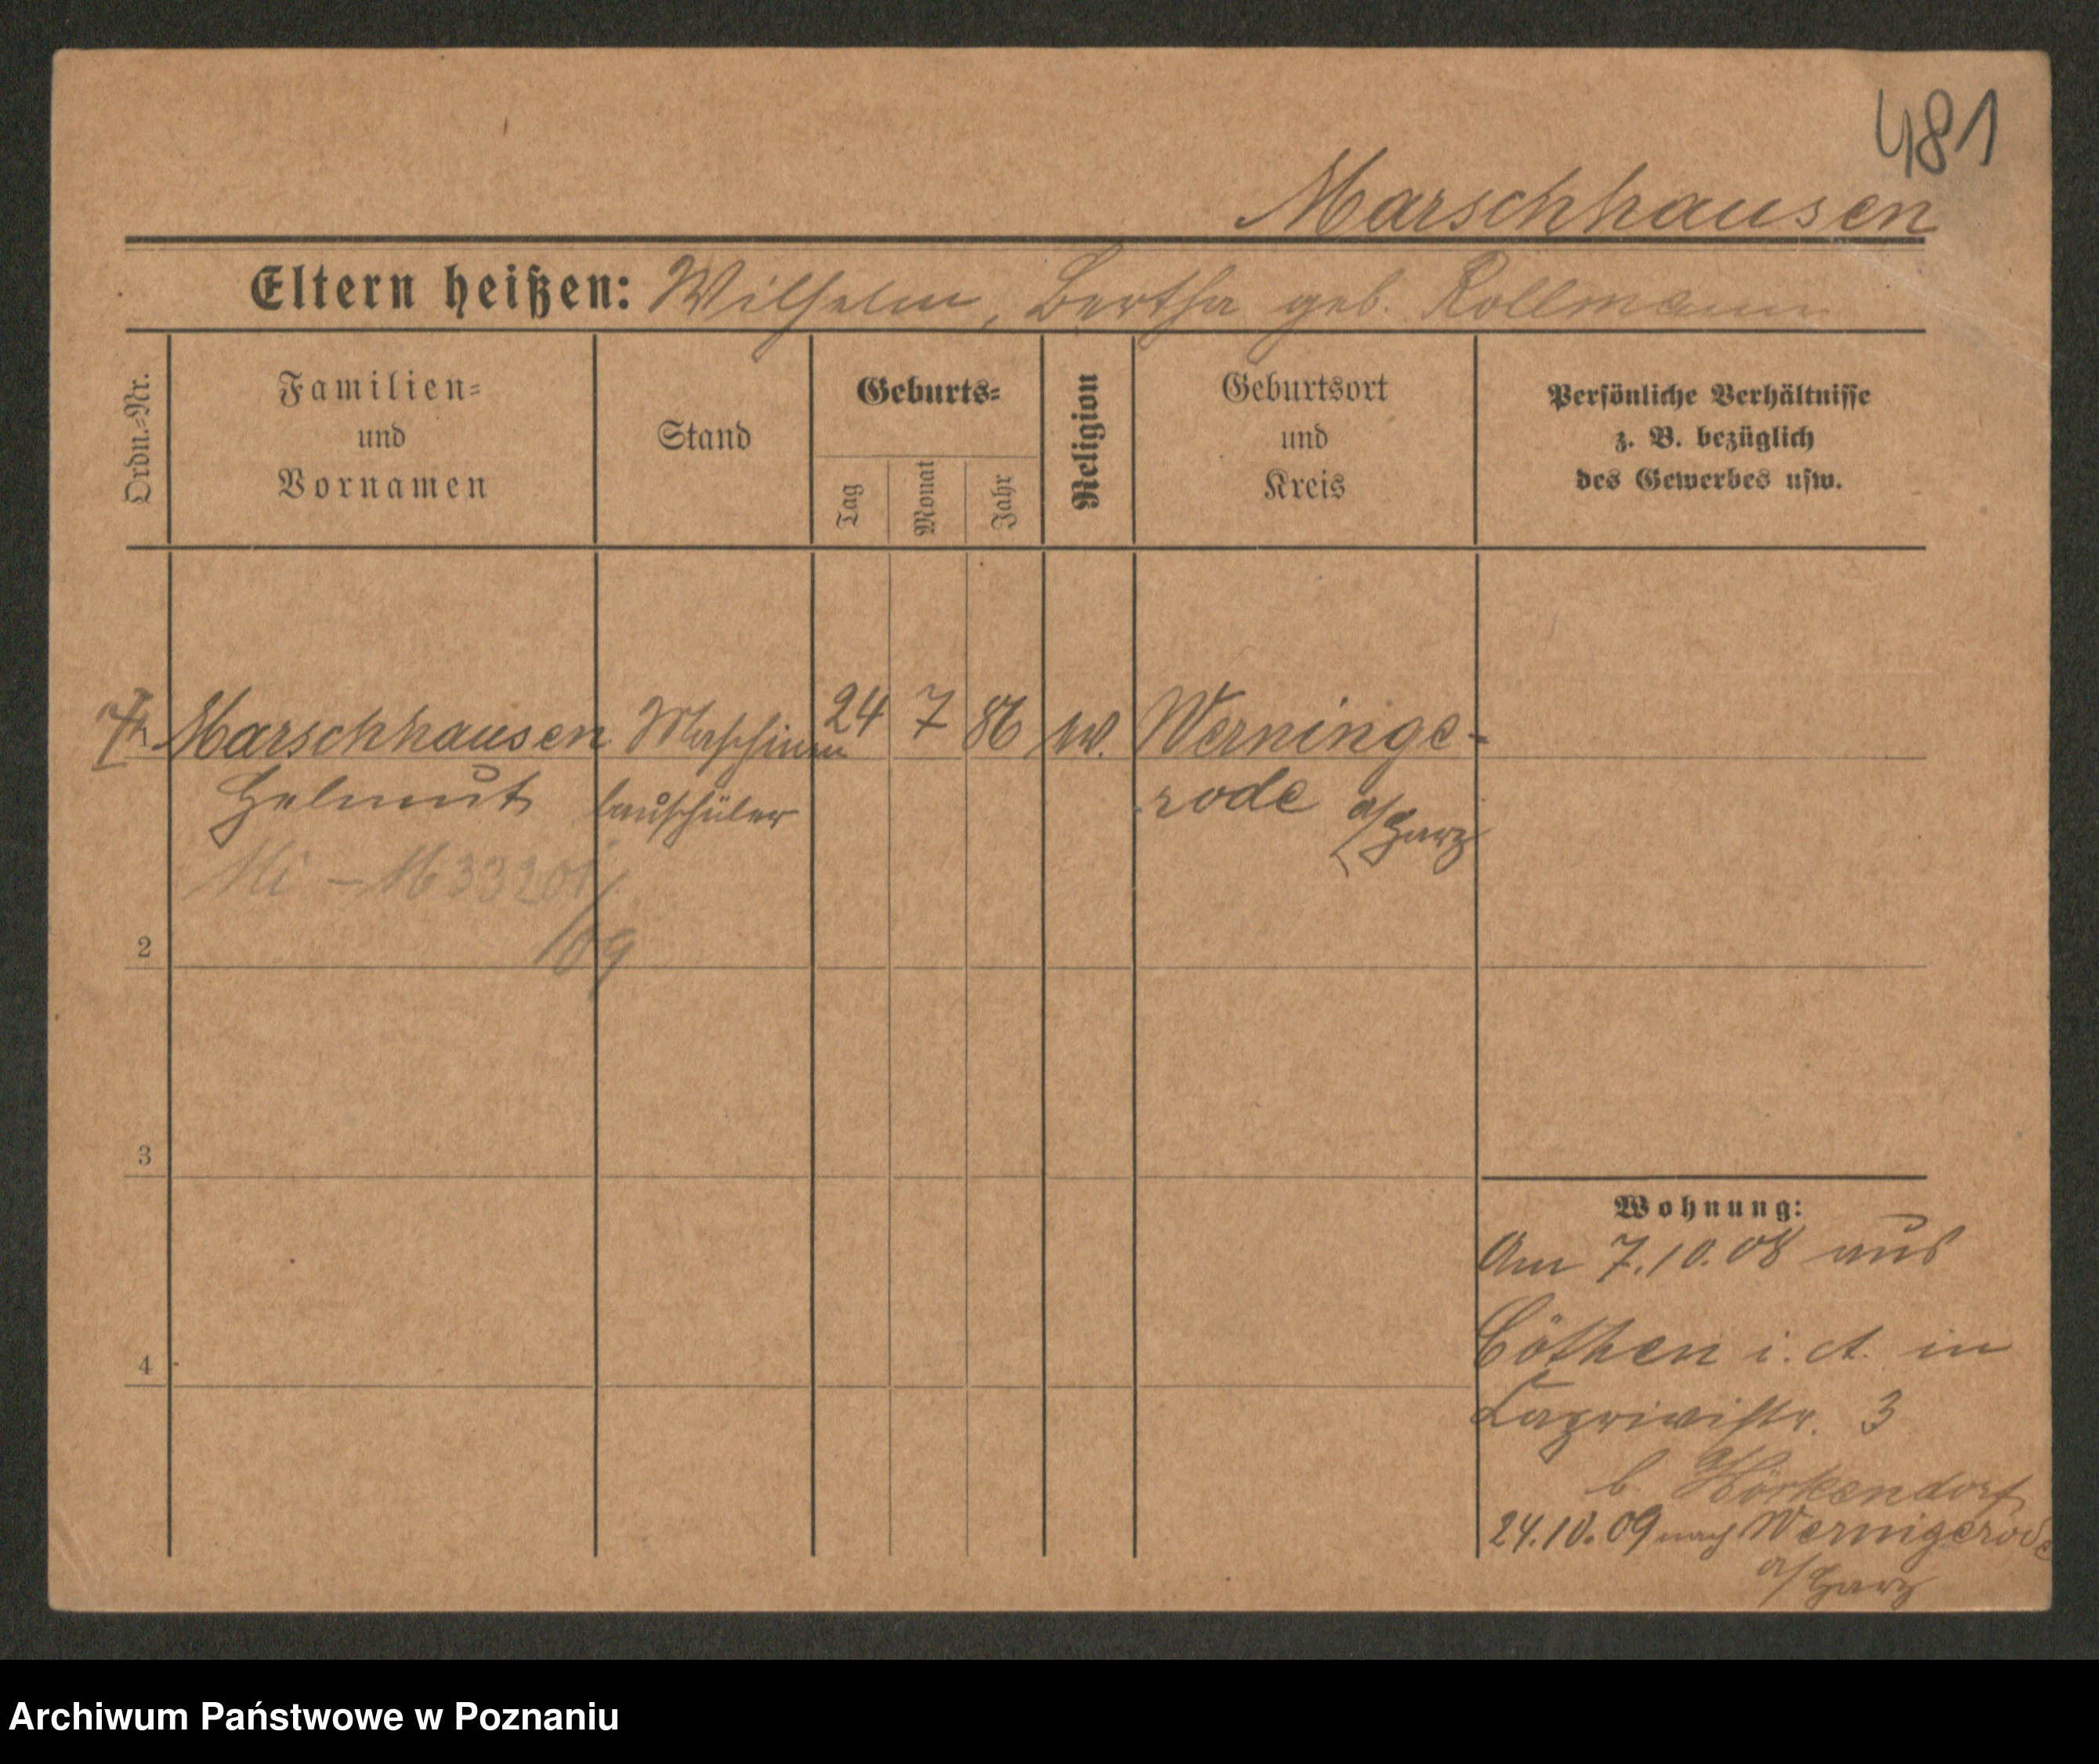 481
Marschhausen
Eltern heißen: Wilhelm, Bertha geb. Rollmann
Ordn.-Nr.
Familien-
und
Vornamen
Stand
Geburts-
Tag
Monat
Jahr
Religion
Geburtsort
und
Kreis
Persönliche Verhältnisse
z. B. bezüglich
des Gewerbes usw.
Marschhausen Maschinen 24 7 86 Werninge-
Helmut bauschüler rode a/Harz
Mi - M 33201/
/09
2
3
4
Wohnung:
Am 7.10.08 aus
Cöthen i. A. in
Caprivistr. 3
b. Hörkendorf
24.10.09 nach Wernigerode
a/Harz
Archiwum Państwowe w Poznaniu